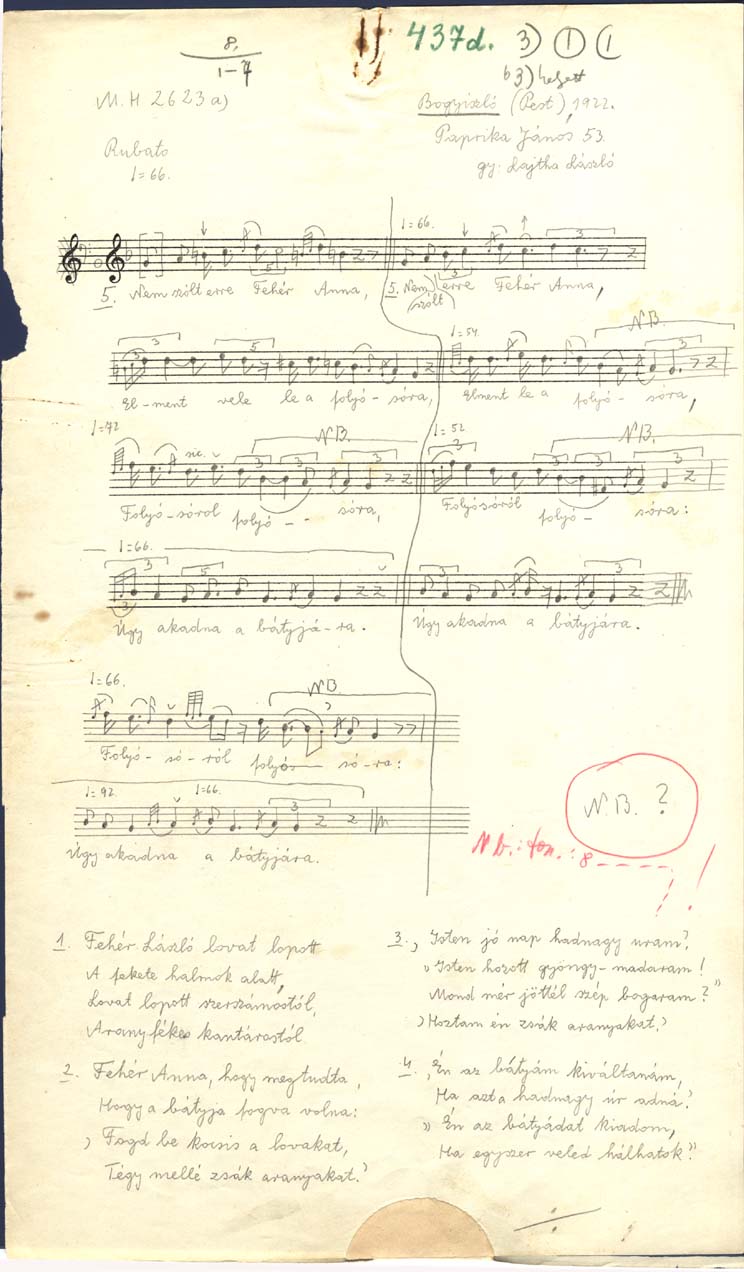 8,
1-7
437d. 3) 1 (1
b3) helyett
M.H 2623a)
Bogyiszló (Pest), 1922.
Paprika János 53.
gy: Lajtha László
Rubato
=66.
=66.
5. Nem szólt erre Fehér Anna, 5. Nem szólt erre Fehér Anna,
=54. NB.
El-ment vele le a folyó-sóra, Elment le a folyó-sóra,
=72 sic. NB. =52 NB.
Folyó-sóról folyó-sóra, Folyósóról folyó-sóra:
=66.
Úgy akadna a bátyjá-ra. Úgy akadna a bátyjára.
=66. NB.
Folyó-só-ról folyós só-ra:
=92. =66.
Úgy akadna a bátyjára.
NB. ?
Nb.: fon.: 8 - - - - - ? !
1. Fehér László lovat lopott
A fekete halmok alatt,
Lovat lopott szerszámostól,
Aranyfékes kantárostól
2. Fehér Anna, hogy megtudta,
Hogy a bátyja fogva volna:
, Fogd be kocsis a lovakat,
Tégy mellé zsák aranyakat.'
3. , Isten jó nap hadnagy uram?
„ Isten hozott gyöngy-madaram!
Mond mér jöttél szép bogaram?"
, Hoztam én zsák aranyakat,'
4. , Én az bátyám kiváltanám,
Ha azt a hadnagy úr adná?
„ Én az bátyádat kiadom,
Ha egyszer veled hálhatok?"